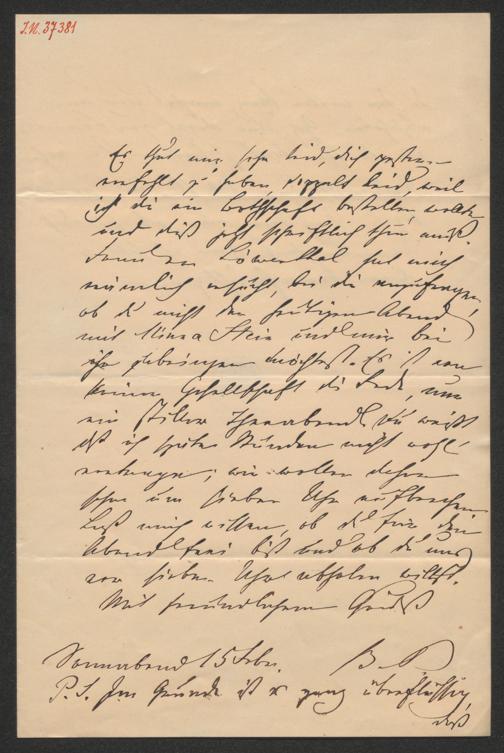 J.N. 37381
Es thut mir sehr leid, dich gestern
verfehlt zu haben, doppelt leid, weil
ich dir eine Bothschaft bestellen wollte
und dieß jetzt schriftlich thun muß.
Löwenthal hat mich
nämlich ersucht, bei dir anzufragen,
ob du nicht den heutigen Abend
mit Minna Stein und mir bei
ihr zubringen möchtest. Es ist von
keiner Gesellschaft die Rede, nur
ein stiller Theeabend. Du weißt
daß ich späte Stunden nicht wohl
vertrage; wir wollen daher
schon um sieben Uhr aufbrechen.
Laß mich wissen, ob du für den
Abend frei bist und ob du uns
vor sieben Uhr abholen willst.
Mit freundlichem Gruß
Sonnabend 15 Febr. B. P
P.S. Im Grunde ist es ganz überflüssig,
daß